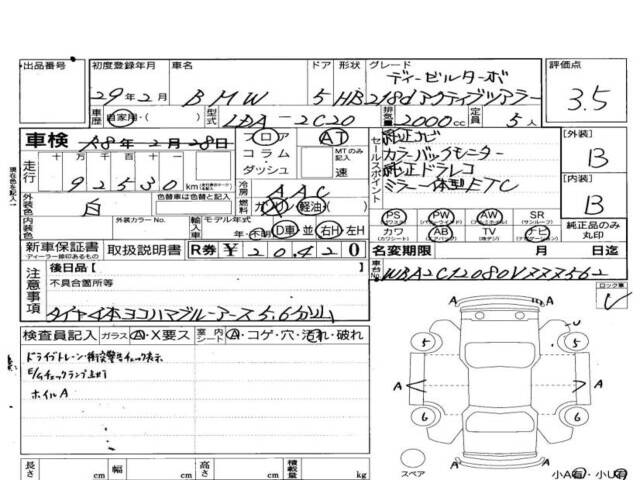 出品番号
初度登録年月 車名 ドア 形状 グレード 評価点
ディーゼルターボ
29年2月 BMW 5 HB 218dアクティブツアラー 3.5
車歴 自家用・( ) 型式 LDA-2C20 排気量 2000cc 定員 5人
車検 R8年2月28日
フロア コラム ダッシュ
AT MTのみ記入 速
セールスポイント
純正ナビ
カラーバックモニター
純正ドラレコ
ミラー一体型ETC
[外装] B
[内装] B
走行 十万千百十
92530 km
冷房 AAC
燃料 ガソ 軽油 ( )
外装色 白 色替車は色替と記入
内装色 外装カラーNo. 輸入車 モデル年式 年・不明 D車 並 右H 左H
PS PW AW SR
カワ AB TV ナビ
純正品のみ丸印
新車保証書 取扱説明書 R券 ¥20420
ディーラー捺印あるもの
名変期限 月 日迄
車台No. WBA2C12080VZZZ562
注意事項 後日品 [ ]
不具合箇所等
タイヤ4本ヨコハマブルーアース5.6分山
ロック車
検査員記入 ガラス A・X要ス 室内シート A・コゲ・穴・汚れ・破れ
ドライブトレーン・衝突警告チェック表示
E/gチェックランプ点灯
ホイルA
U
5 5
A A A
6 6
A
スペア
小A有・小U有
長さ cm 幅 cm 高さ cm 積載量 kg